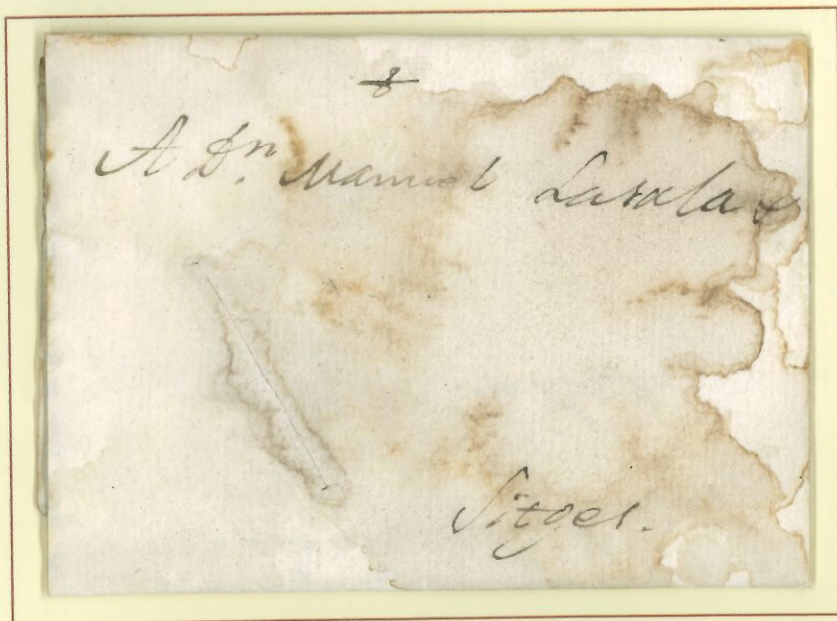 A Dn. Manuel Lasala
Sitges.